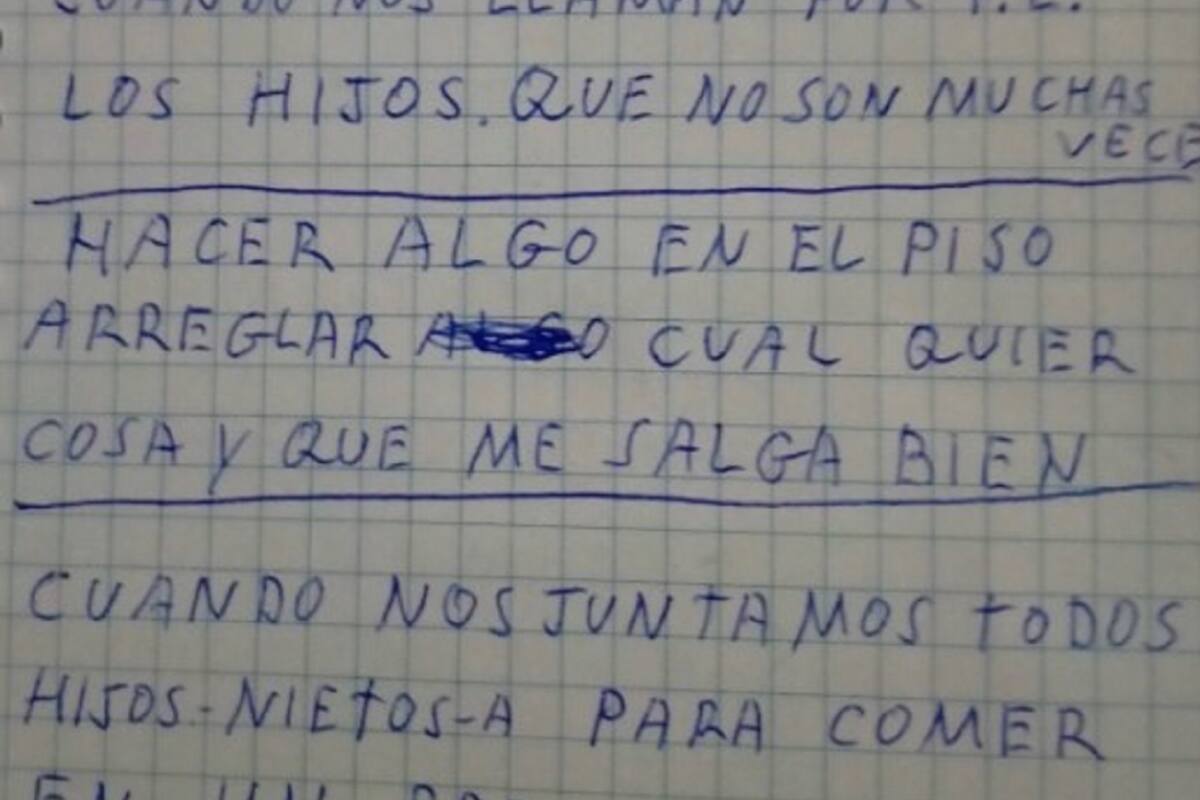 CUANDO NOS LLAMAN POR T.L.
LOS HIJOS. QUE NO SON MUCHAS
VECE
HACER ALGO EN EL PISO
ARREGLAR CUAL QUIER
COSA Y QUE ME SALGA BIEN
CUANDO NOS JUNTAMOS TODOS
HIJOS-NIETOS-A PARA COMER
EN UN